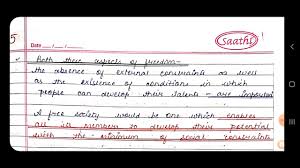 5
Saathi
Date __/__/__
Both these aspects of freedom-
the absence of external constraints as well
as the existence of conditions in which
people can develop their talents - are important
A free society would be one which enables
all its members to develop their potential
with the minimum of social constraints